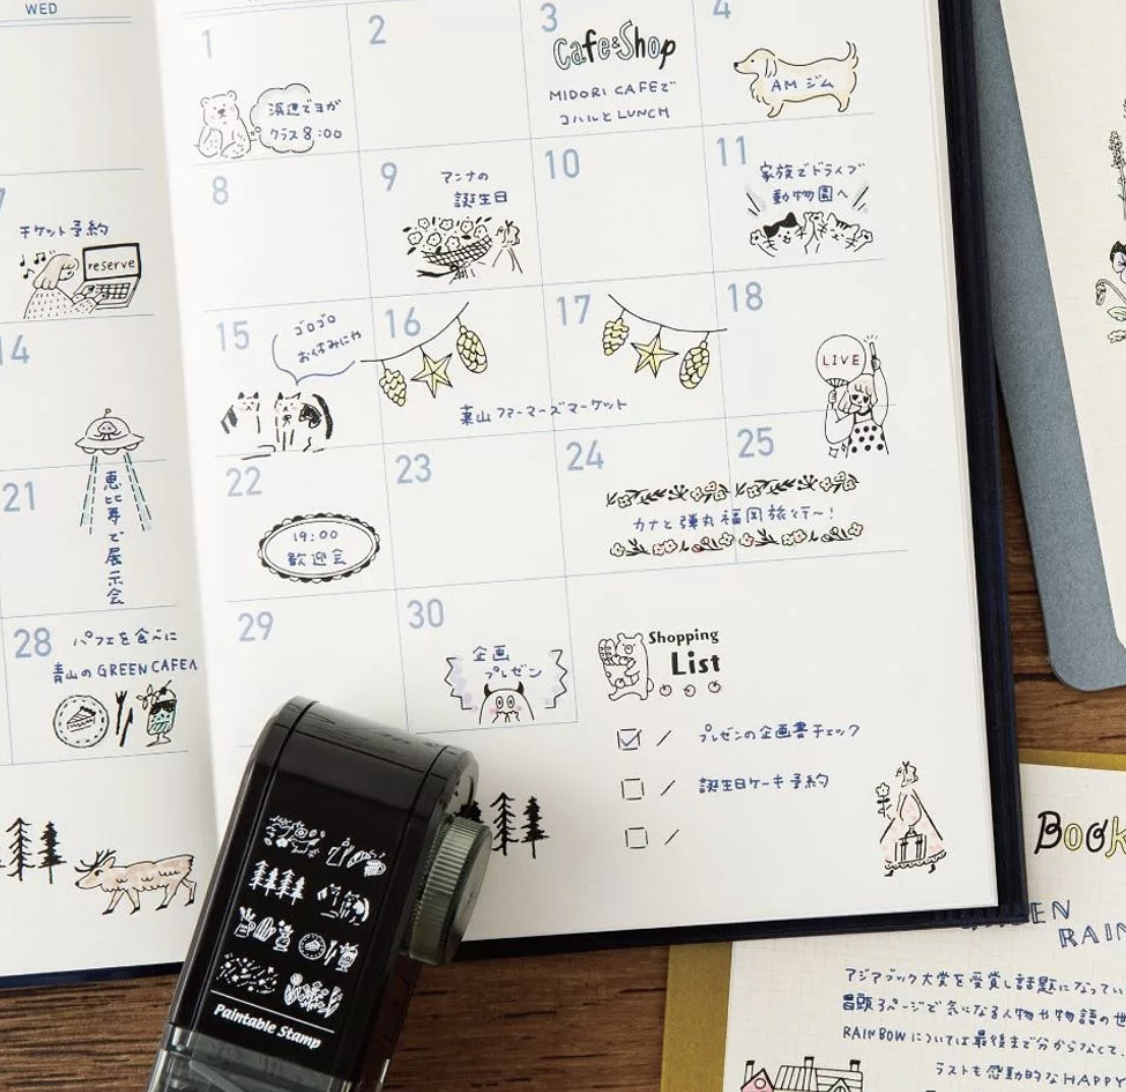 WED
1
2
3
4
Cafe&Shop
MIDORI CAFEで
コハルとLUNCH
AM ジム
浜辺でヨガ
クラス8:00
7
チケット予約
reserve
8
9
アンナの
誕生日
10
11
家族でドライブ
動物園へ
14
15
ゴロゴロ
お休みにゃ
16
17
葉山ファーマーズマーケット
18
LIVE
21
恵比寿で展示会
22
19:00
歓迎会
23
24
25
カナと弾丸福岡旅行～!
28
パフェを食べに
青山のGREEN CAFEへ
29
30
企画
プレゼン
Shopping
List
プレゼンの企画書チェック
誕生日ケーキ予約
Paintable Stamp
BOOK
EN
RAIN
アジアブック大賞を受賞し話題になってい
冒頭3ページで気になる人物や物語の世
RAINBOWについては最後まで分からなくて、
ラストも感動的なHAPPY